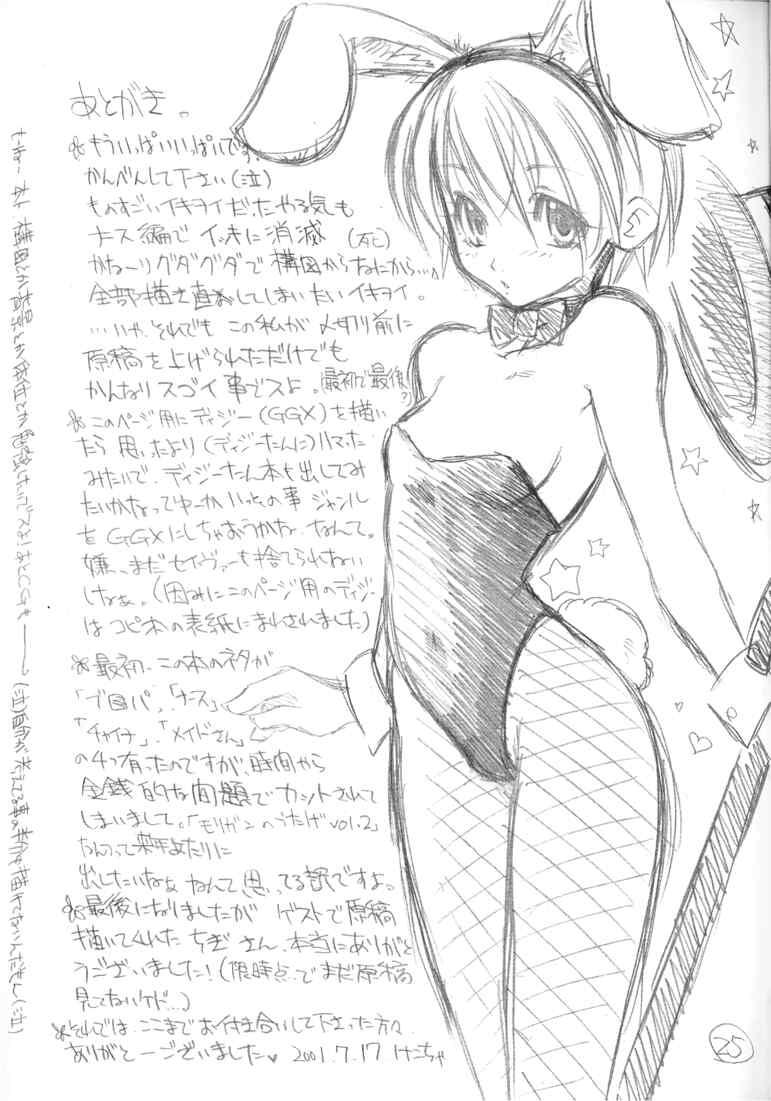 あとがき。
もういっぱいいっぱいです。
かんべんして下さい(泣)
ものすごいイキヲイだったやる気も
ナース編でイッキに消滅(死)
かな〜りグダグダで構図からなにから…
全部描き直ししてしまいたいイキヲイ。
…いや、それでもこの私が〆切り前に
原稿を上げられただけでも
かんなりスゴイ事でスよ。(最初で最後?)
このページ用にディジー(GGX)を描い
たら思ったより(ディジーたんに)ハマった
みたいで、ディジーたん本も出してみ
たいかなってゆーかいっその事ジャンル
をGGXにしちゃおうかな、なんて。
嫌、まだセイヴァーも捨てられない
しなぁ。(因みにこのページ用のディジー
はコピ本の表紙にまわされました)
最初、この本のネタが
「ブルパ」、「ナース」
「チャイナ」、「メイドさん」
の4つ有ったのですが、時間から
金銭的な問題でカットされて
しまいまして。「モリガンのうたげvol.2」
なんつって来年あたりに
出したいなぁなんて思ってる訳ですよ。
最後になりましたが ゲストで原稿
描いてくれた ちぎさん、本当にありがと
うございました!(現時点でまだ原稿
見てないケド…)
それでは、ここまでお付き合いして下さった方々、
ありがと〜ございました♥ 2001.7.17 けこちゃ
あと、構図とか背景とか
25